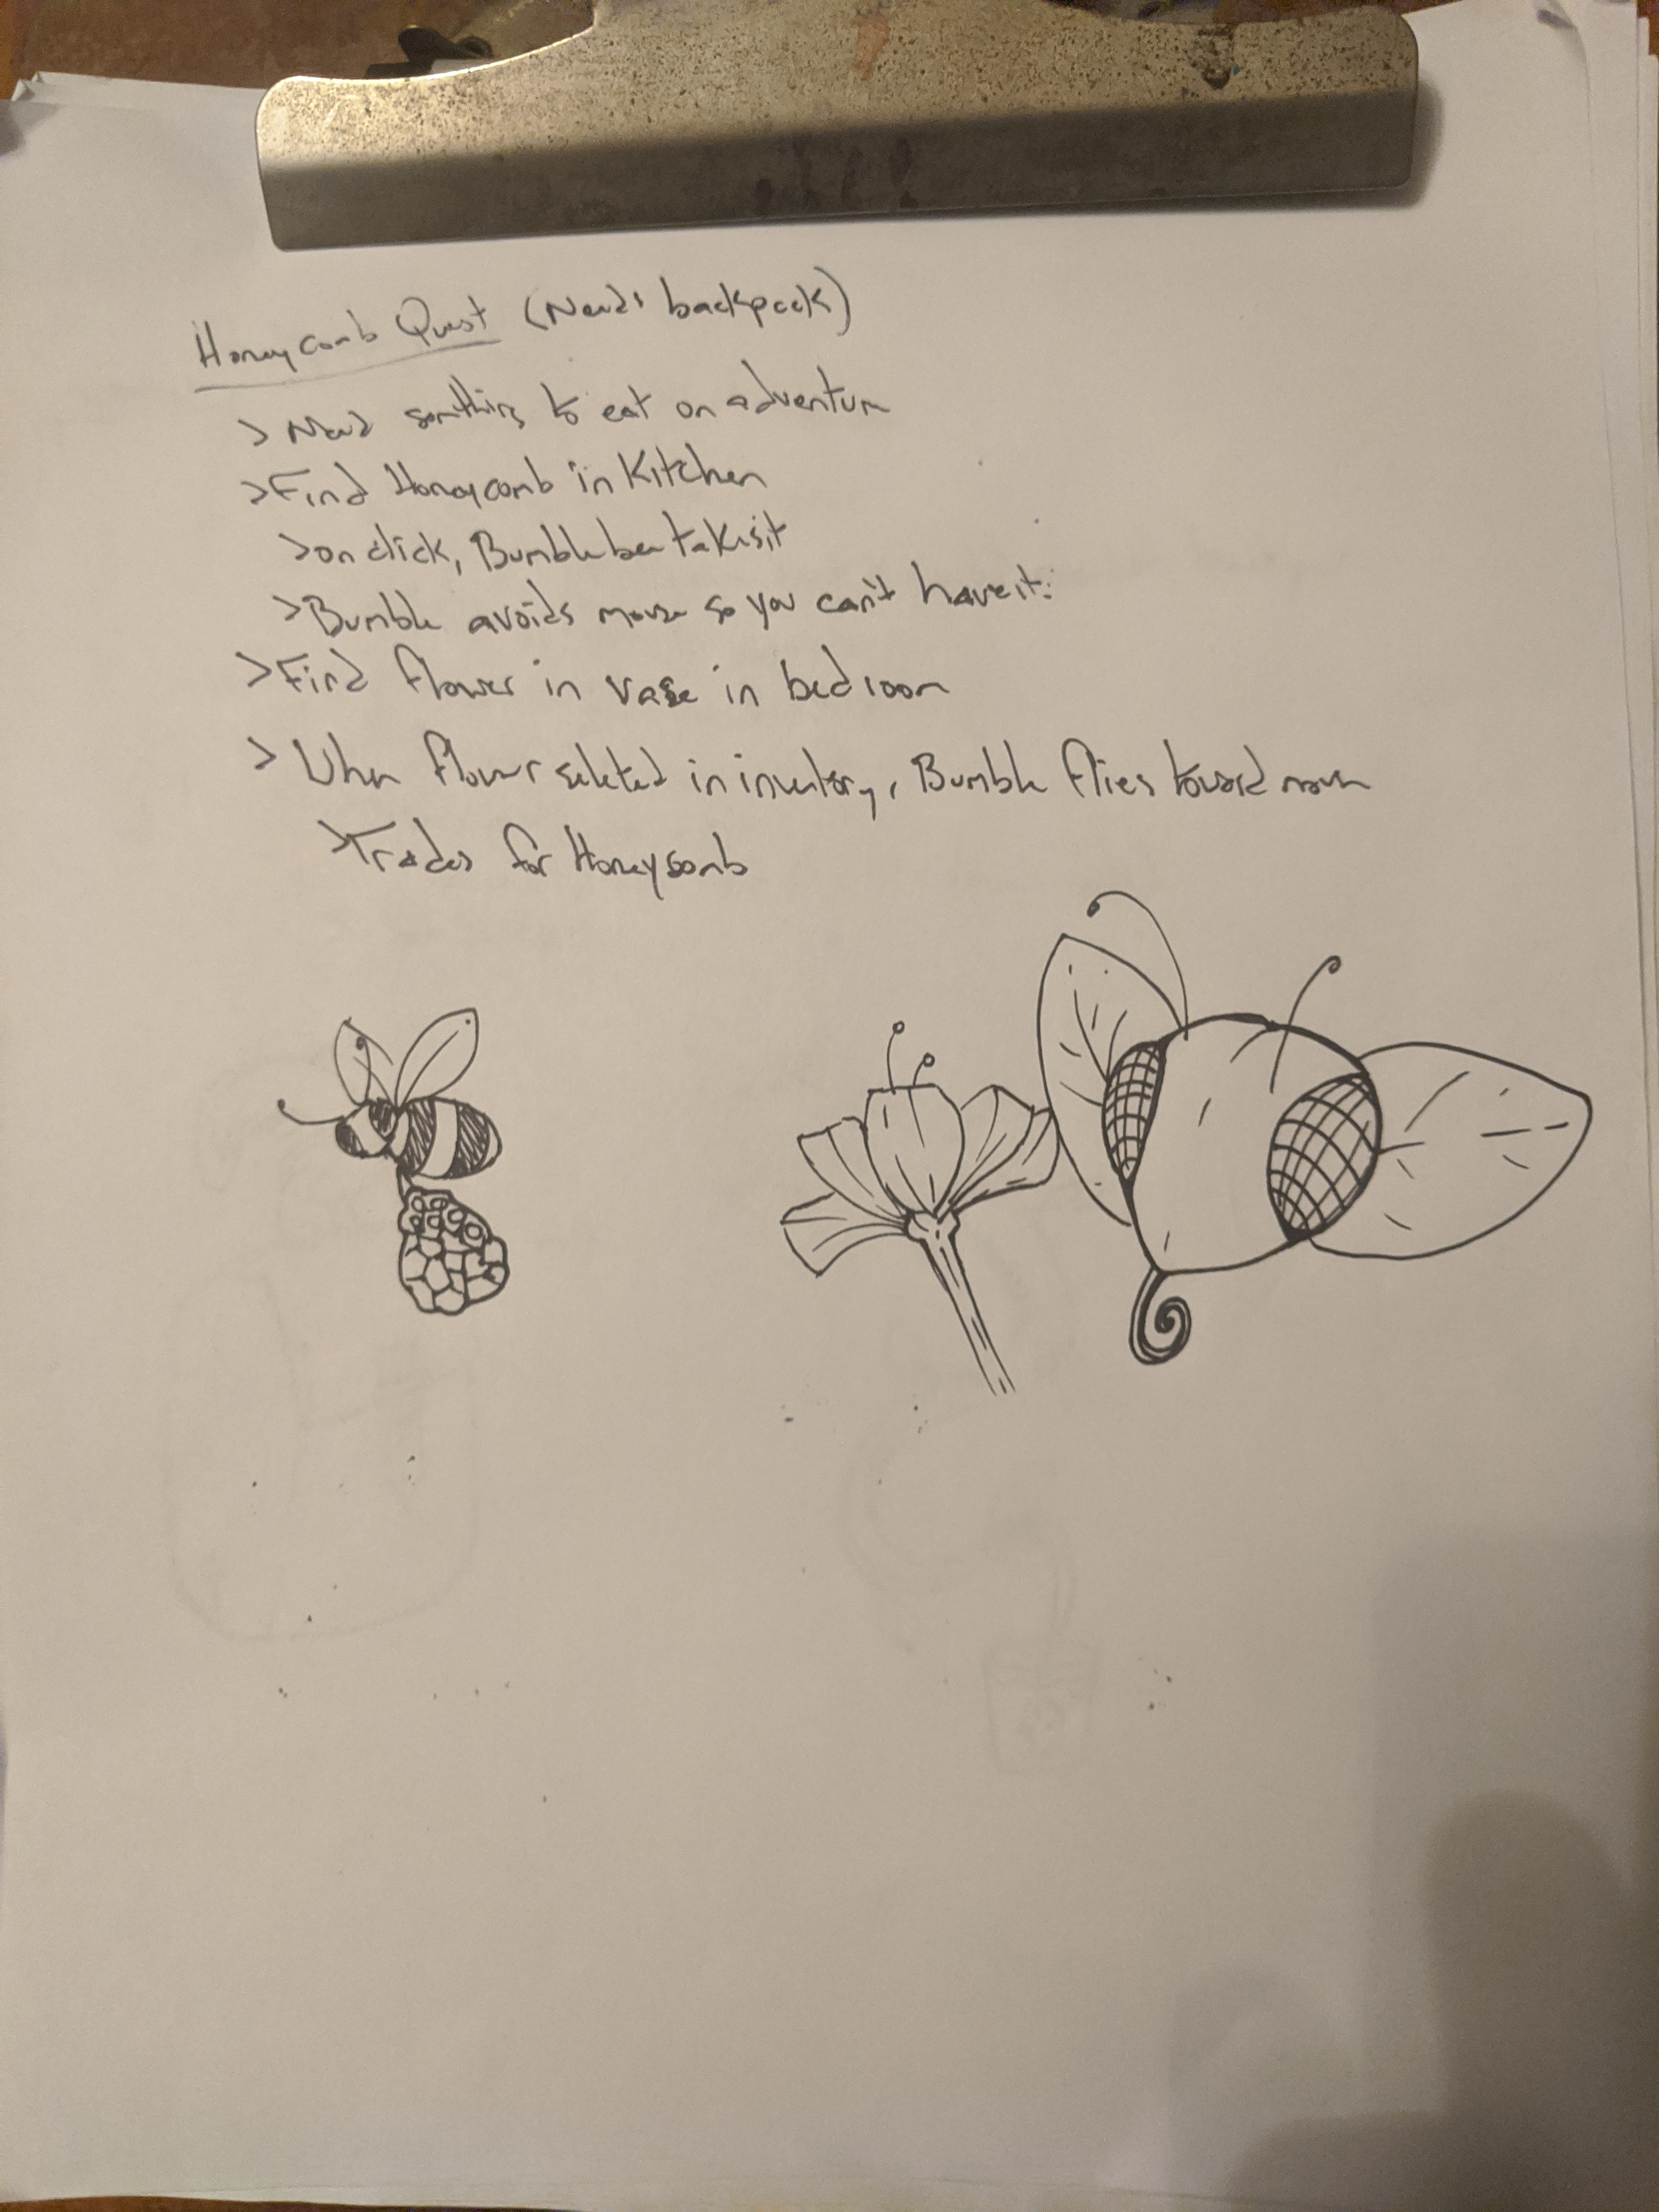 Honeycomb Quest (Needs backpack)
> Need something to eat on adventure
> Find Honeycomb in Kitchen
> on click, Bumblebee takes it
> Bumble avoids mouse so you can't have it.
> Find flower in vase in bedroom
> When flower seleted in inventory, Bumble flies toward mouse
> Trades for Honeycomb